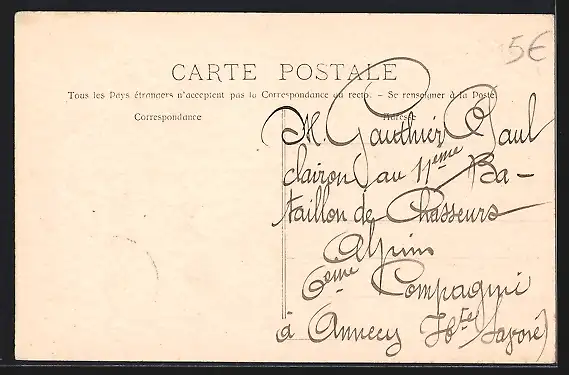 5€
CARTE POSTALE
Tous les Pays étrangers n'acceptent pas la Correspondance au recto. – Se renseigner à la Poste
Correspondance
Adresse
M. Gauthier Paul
clairon au 11eme Ba-
taillon de Chasseurs
Alpins
6eme Compagnie
à Annecy Hte Savoie)